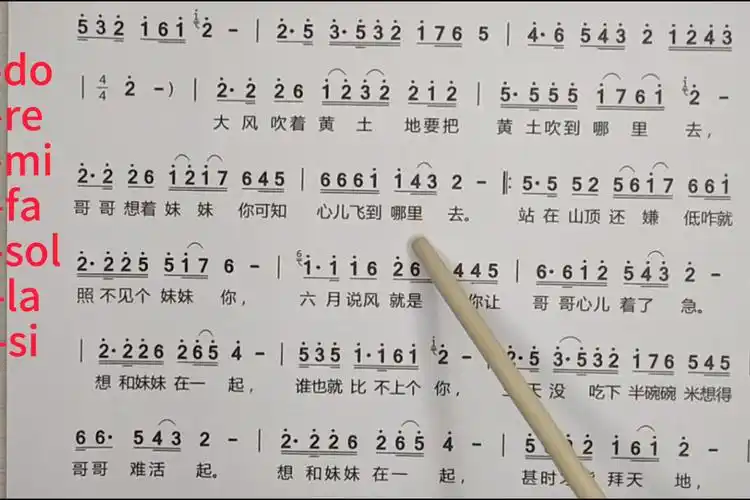 -do
-re
-mi
-fa
-sol
-la
-si
5 3 2 1 6 1 2 - | 2· 5 3· 5 3 2 1 7 6 5 | 4· 6 5 4 3 2 1 2 4 3
| 4/4 2 -) | 2· 2 2 6 1 2 3 2 2 1 2 | 5· 5 5 5 1 7 6 1 2 -
大 风 吹着 黄 土 地要把 黄 土吹到 哪 里 去，
2· 2 2 6 1 2 1 7 6 4 5 | 6 6 6 1 1 4 3 2 - ‖: 5· 5 5 2 5 6 1 7 6 6 1
哥 哥 想着 妹 妹 你可知 心儿飞到 哪里 去。 站 在 山顶 还 嫌 低咋就
2· 2 2 5 5 1 7 6 - | 1· 1 1 6 2 6 4 4 5 | 6· 6 1 2 5 4 3 2 -
照 不见个 妹妹 你， 六 月说风 就是 你让 哥 哥心儿 着了 急。
| 2· 2 2 6 2 6 5 4 - | 5 3 5 1· 1 6 1 2 - 2· 5 3· 5 3 2 1 7 6 5 4 5
想 和妹妹 在一 起， 谁也就 比 不上个 你， 天 没 吃下 半碗碗 米想得
6 6· 5 4 3 2 - | 2· 2 2 6 2 6 5 4 - 5 2 1 6 1 2 -
哥哥 难活 起。 想 和妹妹 在一 起， 甚时 拜天 地，